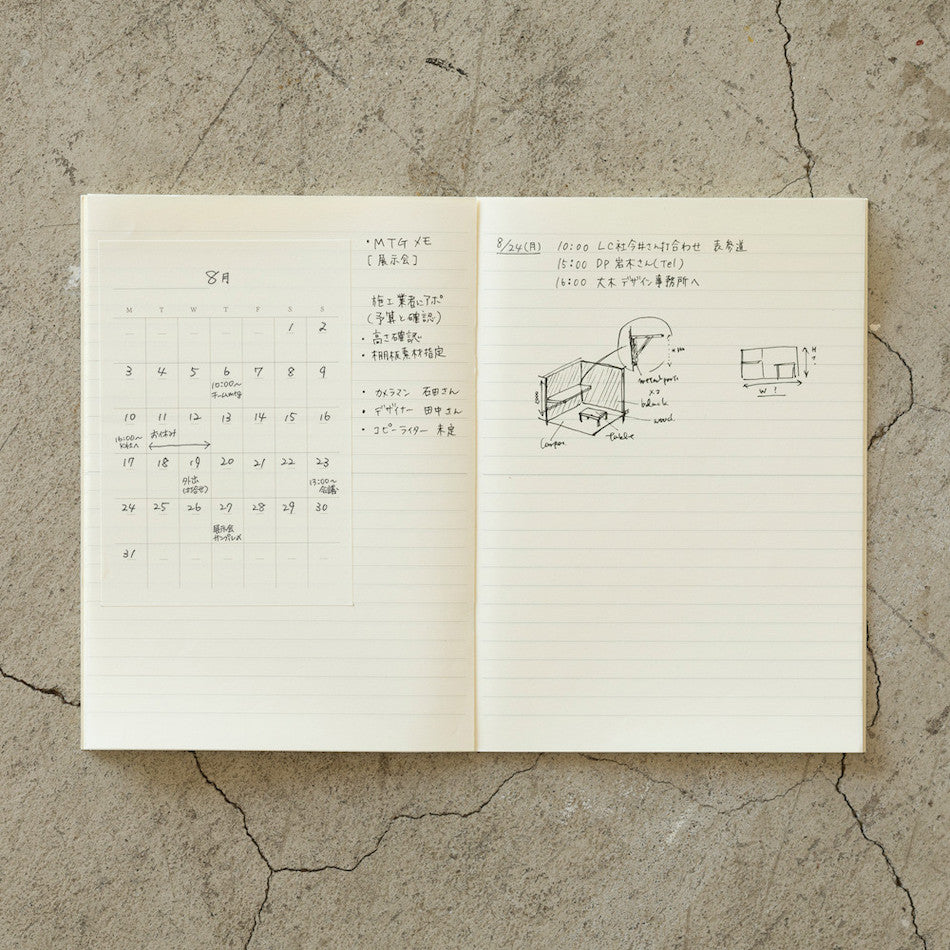 8月
M T W T F S S
1 2
3 4 5 6 7 8 9
10:00〜
チームmtg
10 11 12 13 14 15 16
16:00〜
K社へ
お休み
17 18 19 20 21 22 23
外出
(打合せ)
13:00〜
会議
24 25 26 27 28 29 30
展示会
サンプル〆
31
・MTGメモ
[展示会]
施工業者にアポ
(予算と確認)
・高さ確認
・棚板素材指定
・カメラマン 石田さん
・デザイナー 田中さん
・コピーライター 未定
8/24(月) 10:00 LC社今井さん打合わせ 表参道
15:00 DP 岩木さん(Tel)
16:00 大木デザイン事務所へ
metal parts
black
wood
table
H
?
W ?